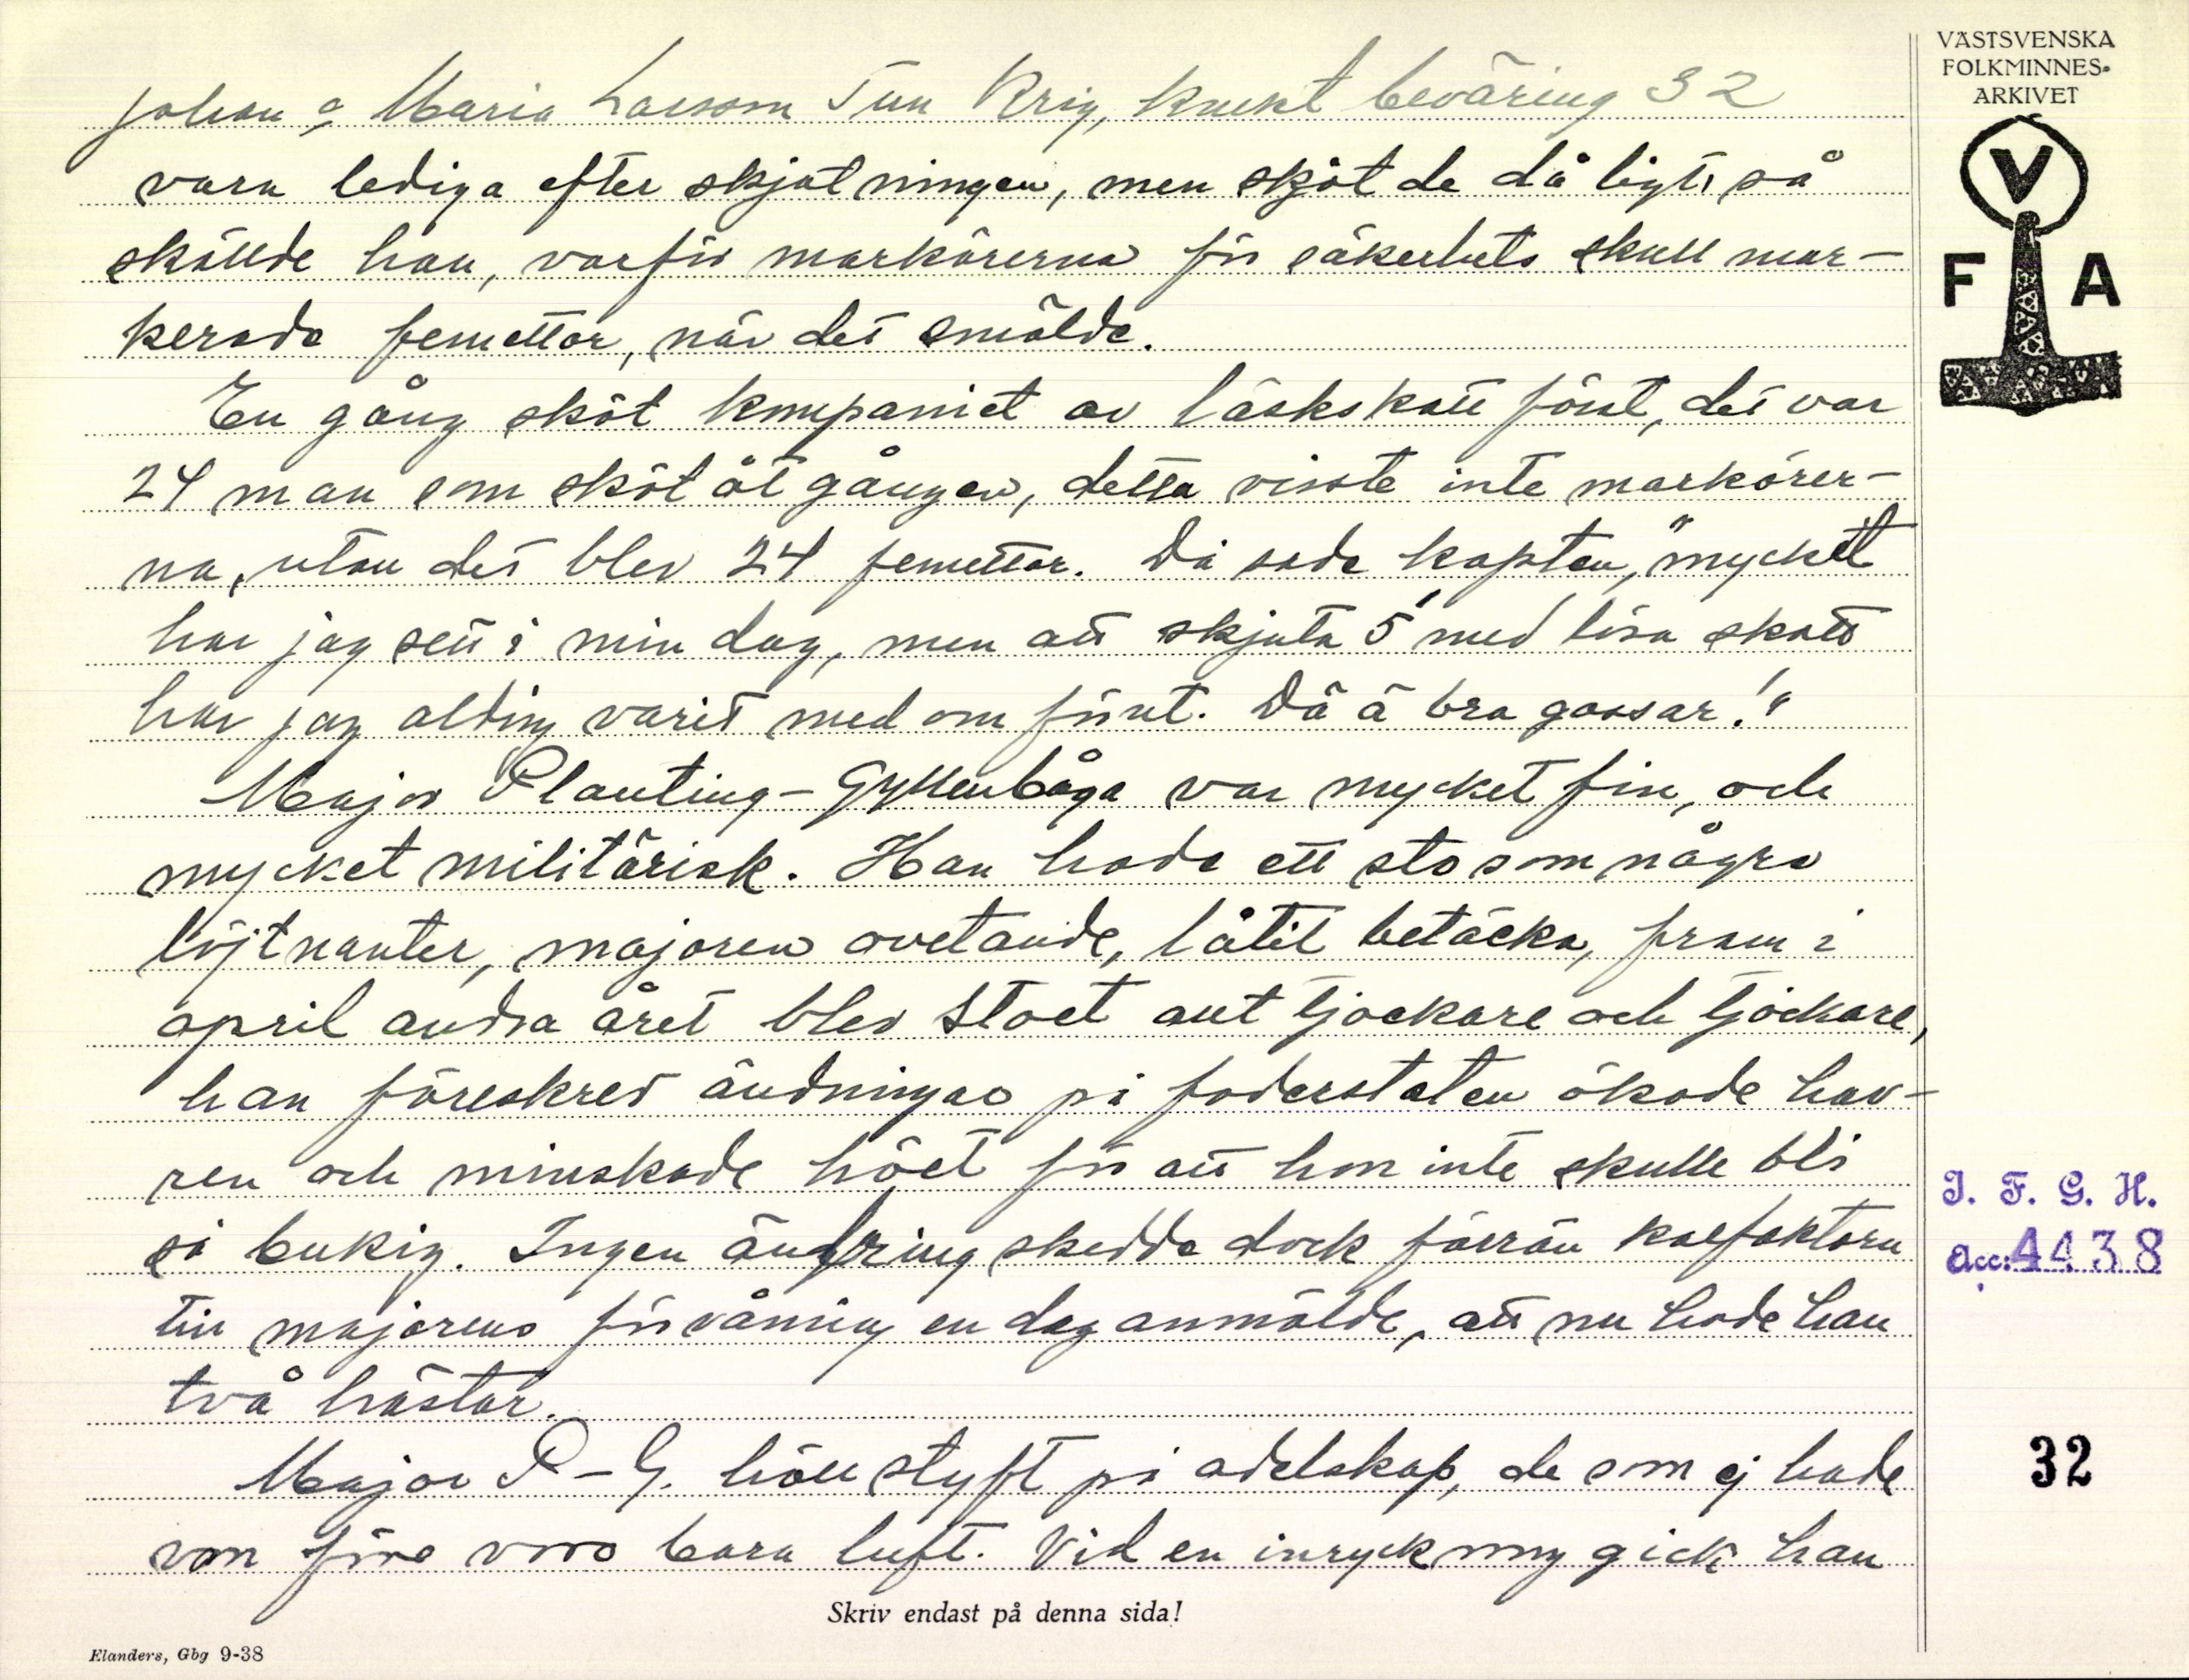 Johan o Maria Larsson Tun Krig, knekt beväring 32
vara lediga efter skjutningen, men sköt de dåligt, så
skällde han, varför markörerna för säkerhets skull mar-
kerade femettor, när det smälde.
En gång sköt kompaniet av löskskott först, det var
24 man som sköt åt gången, detta visste inte markörer-
na, utan det blev 24 femettor. Då sade kapten, "mycket
har jag sett i min dag, men att skjuta 5' med lösa skott
har jag alding varit med om förut. Dä ä bra gossar!"
Major Planting-Gyllenbåga var mycket fin, och
mycket militärisk. Han hade ett sto som några
löjtnanter, majoren ovetande, låtit betäcka, fram i
april andra året blev stoet allt tjockare och tjockare,
han föreskrev ändningar på foderstaten ökade hav-
ren och minskade höet för att hon inte skulle bli
så bukig. Ingen ändring skedde dock förrän korfaktorn
till majorens förvåning en dag anmälde, att nu hade han
två hästar.
Major P-G. höll styft på adelskap, de som ej hade
von före voro bara luft. Vid en inryckning gick han
Skriv endast på denna sida!
Elanders, Gbg 9-38
VÄSTSVENSKA
FOLKMINNES-
ARKIVET
V
F A
I. F. G. H.
Acc: 4438
32